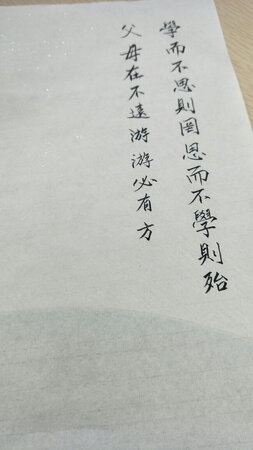 學而不思則罔思而不學則殆
父母在不遠游游必有方